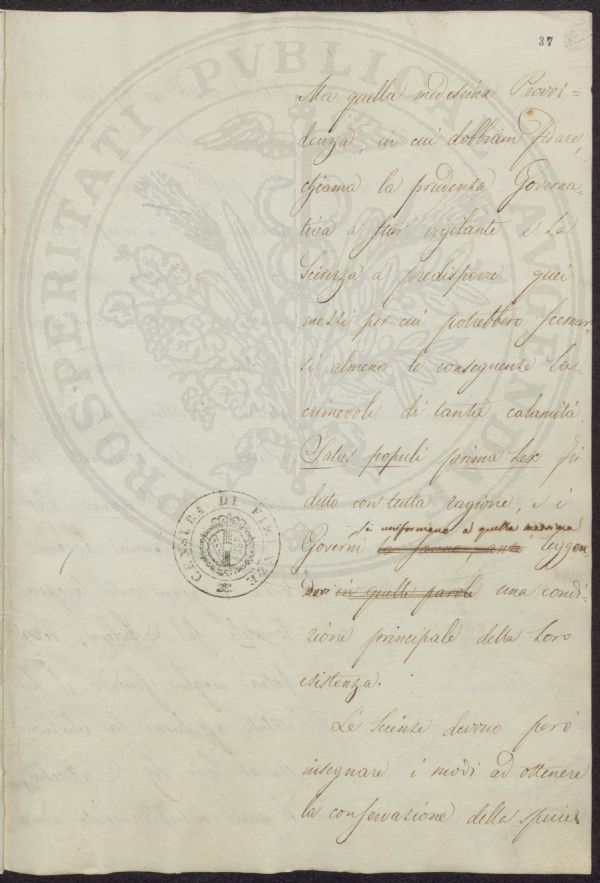 37
Ma quella medesima Provvi-
denza, in cui dobbiam fidare,
chiama la prudenza Governa-
tiva a star vigilante e la
Scienza a predisporre quei
mezzi per cui potrebbero scemar-
si almeno le conseguenze la-
crimevoli di tanta calamità.
Salus populi prima Lex fù
detto con tutta ragione, e i
si uniformano a quella massima
Governi leggen-
dovi in quelle parole una condi-
zione principale della loro
esistenza.
Le Scienze devono però
insegnare i modi ad ottenere
la conservazione della specie
CENSURA DI FIRENZE
PROSPERITATI PUBLICAE AUGENDAE